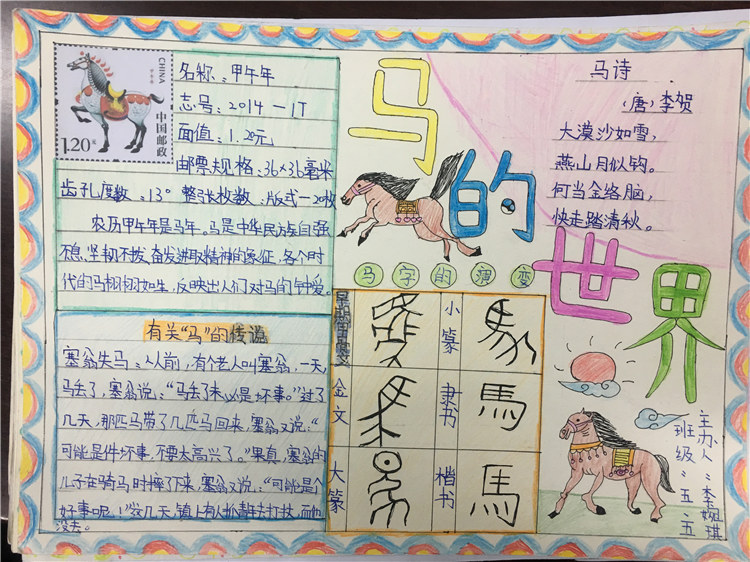 马的世界
CHINA
甲午年
中国邮政
1.20元
名称：甲午年
志号：2014—1T
面值：1.20元
邮票规格：36×36毫米
齿孔度数：13° 整张枚数：版式一20枚
农历甲午年是马年。马是中华民族自强
不息、坚韧不拔、奋发进取精神的象征，各个时
代的马栩栩如生，反映出人们对马的钟爱。
有关“马”的传说
塞翁失马：从前，有个老人叫塞翁，一天，
马丢了，塞翁说：“马丢了未必是坏事。”过了
几天，那匹马带了几匹马回来，塞翁又说：“
可能是件坏事，不要太高兴了。”果真，塞翁的
儿子在骑马时摔了下来，塞翁又说：“可能是个
好事呢！”没几天，镇上有人抓青年去打仗，而他
没去。
马字的演变
金文
大篆
小篆
隶书
馬
楷书
馬
马诗
（唐）李贺
大漠沙如雪，
燕山月似钩。
何当金络脑，
快走踏清秋。
主办人：李婉琪
班级：五.五